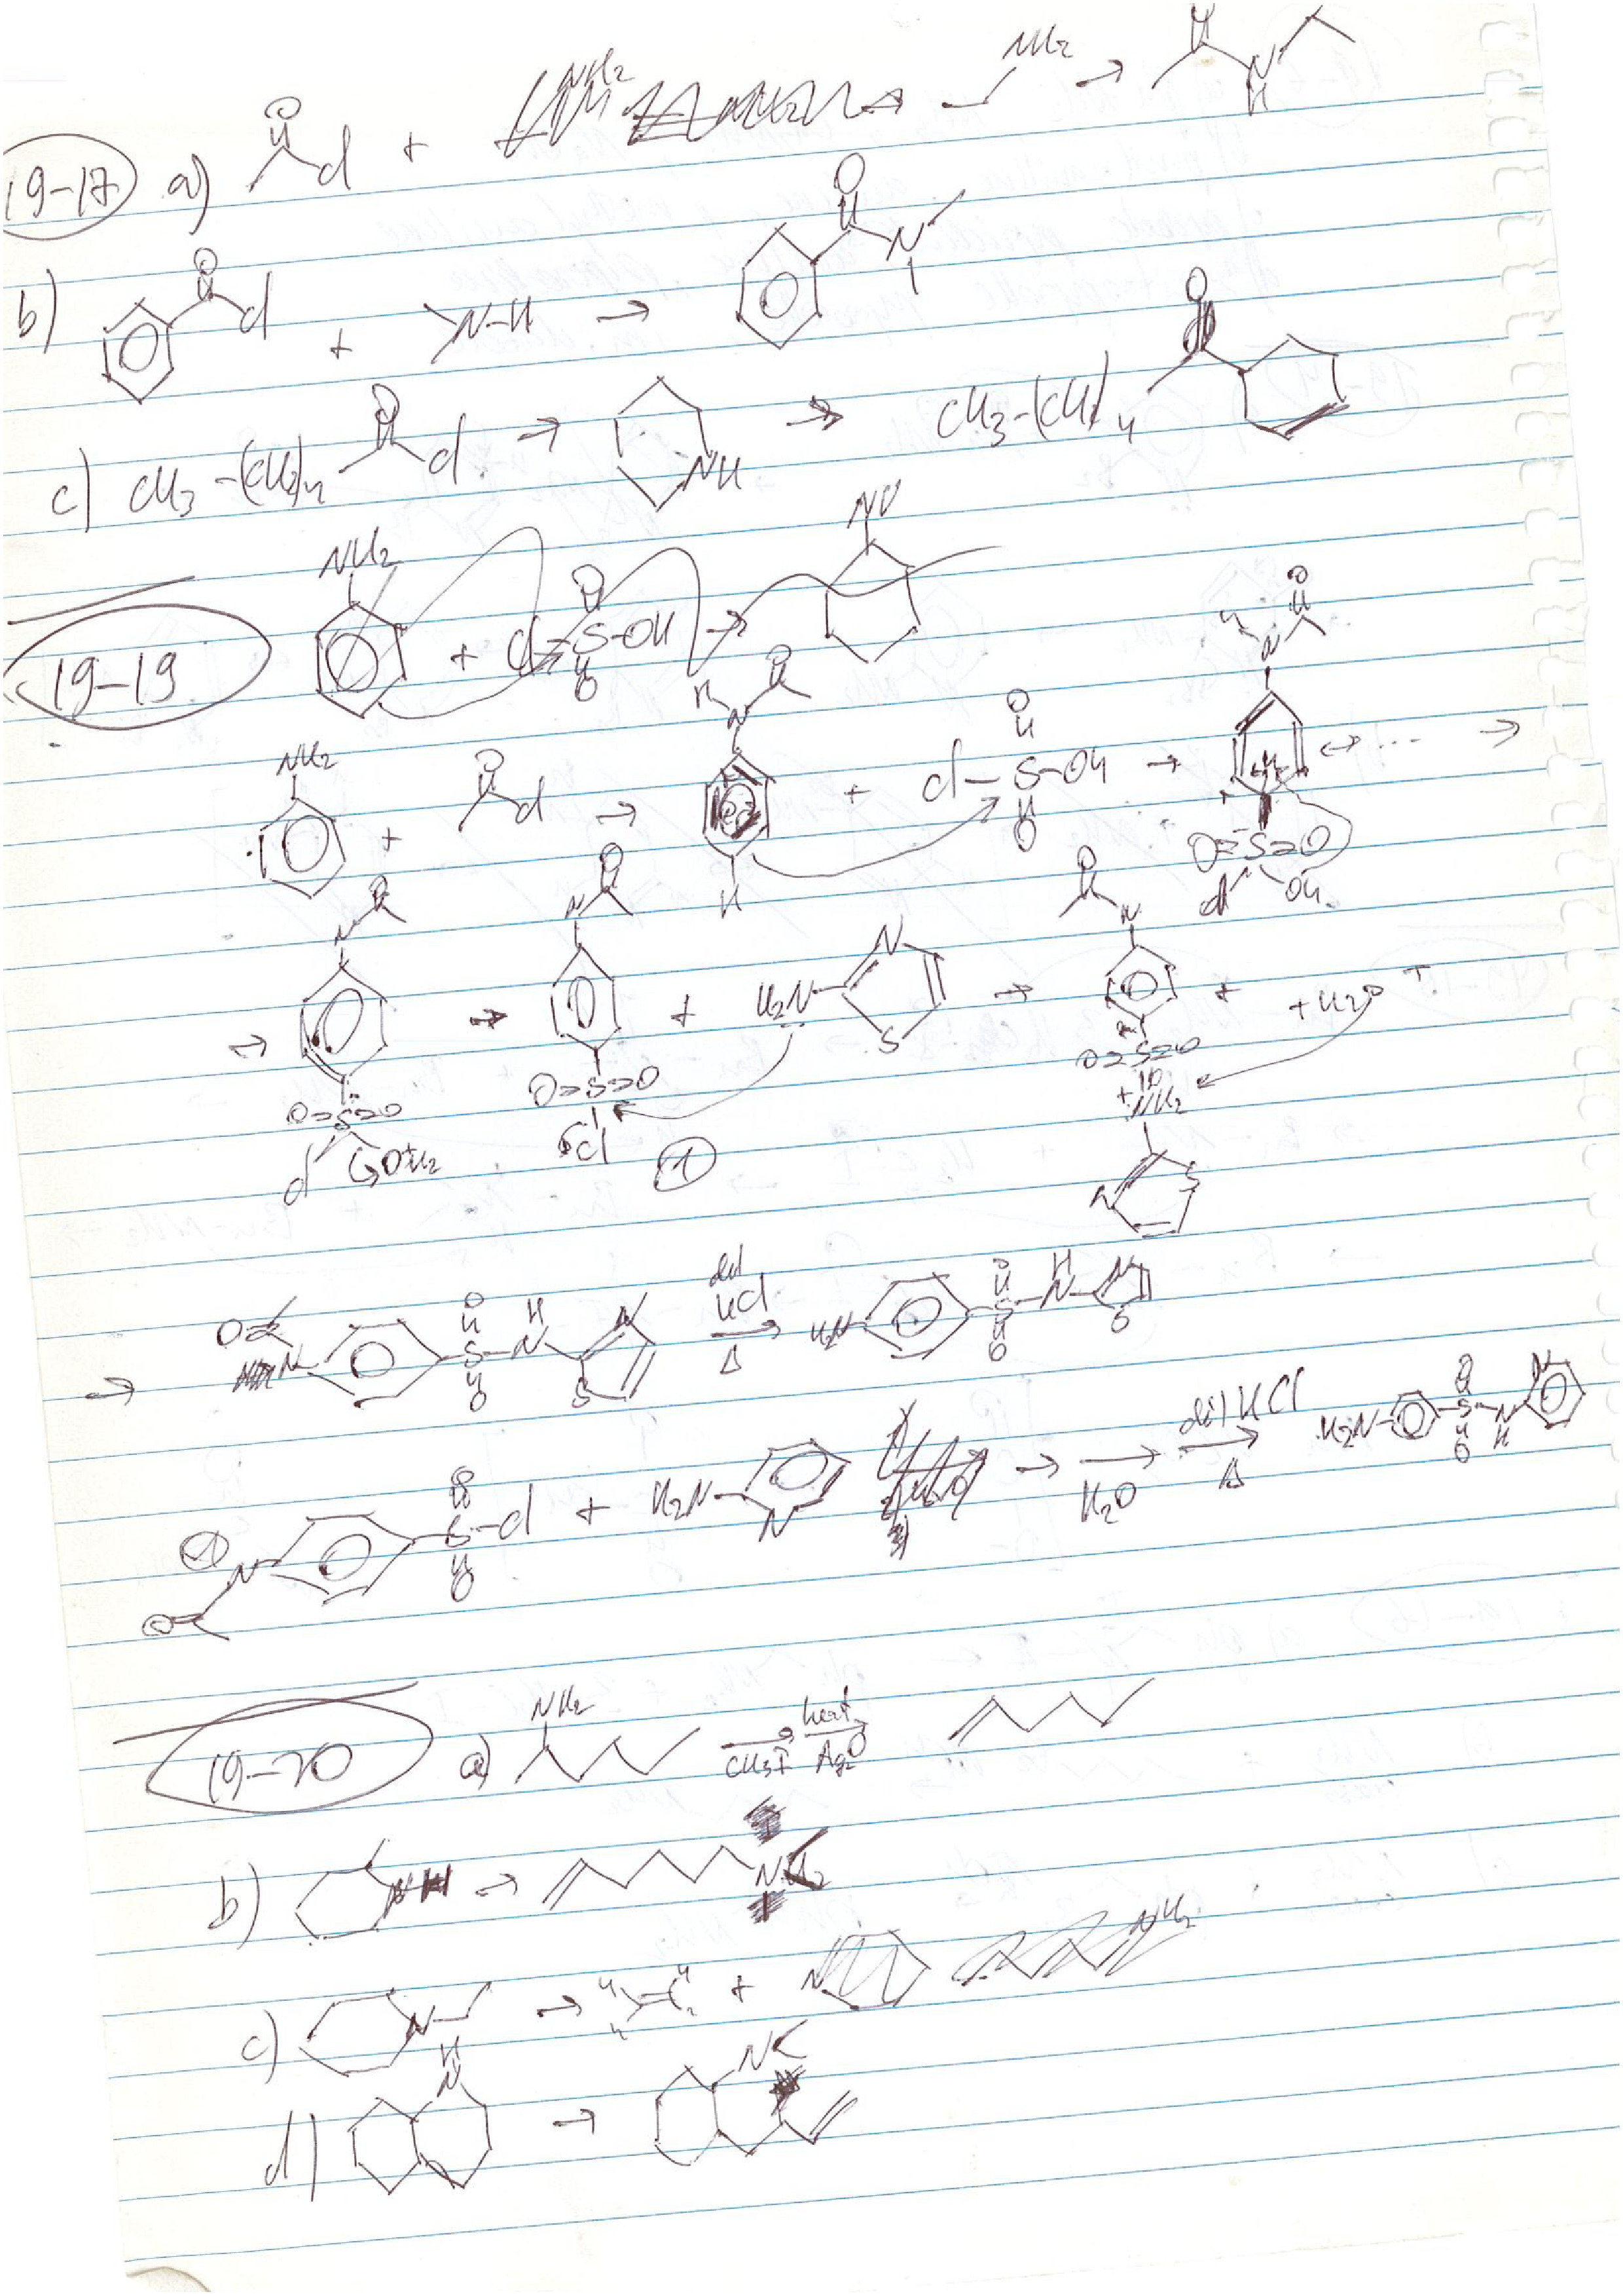 19-17 a) O Cl + NH2 → O N H
b) O Cl + N-H → O N
c) CH3-(CH2)4 O Cl → NH → CH3-(CH2)4 O
19-19 NH2 + Cl-S-OH O O →
NH2 + O Cl → H N O H + Cl-S-OH O O → H N O O=S=O Cl OH ↔ ... →
→ N O O=S=O Cl OH2 → N O O=S=O Cl ① + H2N N S → O N O=S=O + NH2 N S + H2O
→ O N O S O H N N S dil HCl Δ → H2N O S O H N N S
O N O S O Cl + H2N N → → H2O dil HCl Δ → H2N O S O N H N
19-20 a) NH2 CH3I heat Ag2O
b) N → N
c) N → H H H +
d) H N → N